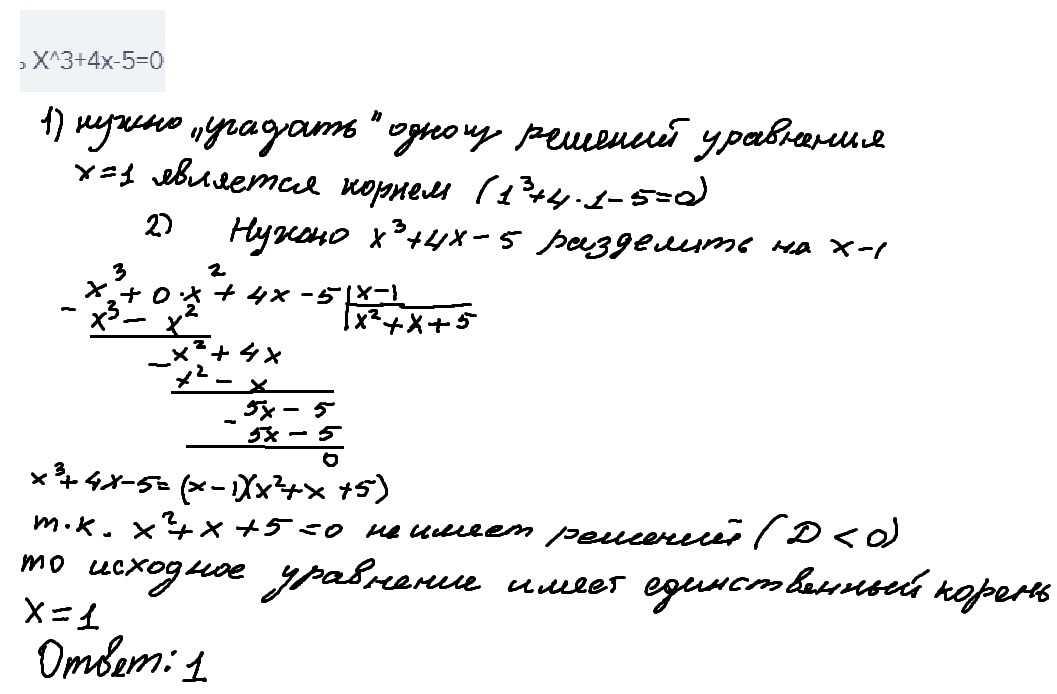 ь X^3+4x-5=0
1) нужно „угадать" одно из решений уравнения
x=1 является корнем (1³+4·1-5=0)
2) Нужно x³+4x-5 разделить на x-1
x³+0·x²+4x-5 | x-1
- x³-x² | x²+x+5
x²+4x
- x²-x
5x-5
- 5x-5
0
x³+4x-5=(x-1)(x²+x+5)
т.к. x²+x+5=0 не имеет решений (D<0)
то исходное уравнение имеет единственный корень
x=1
Ответ: 1